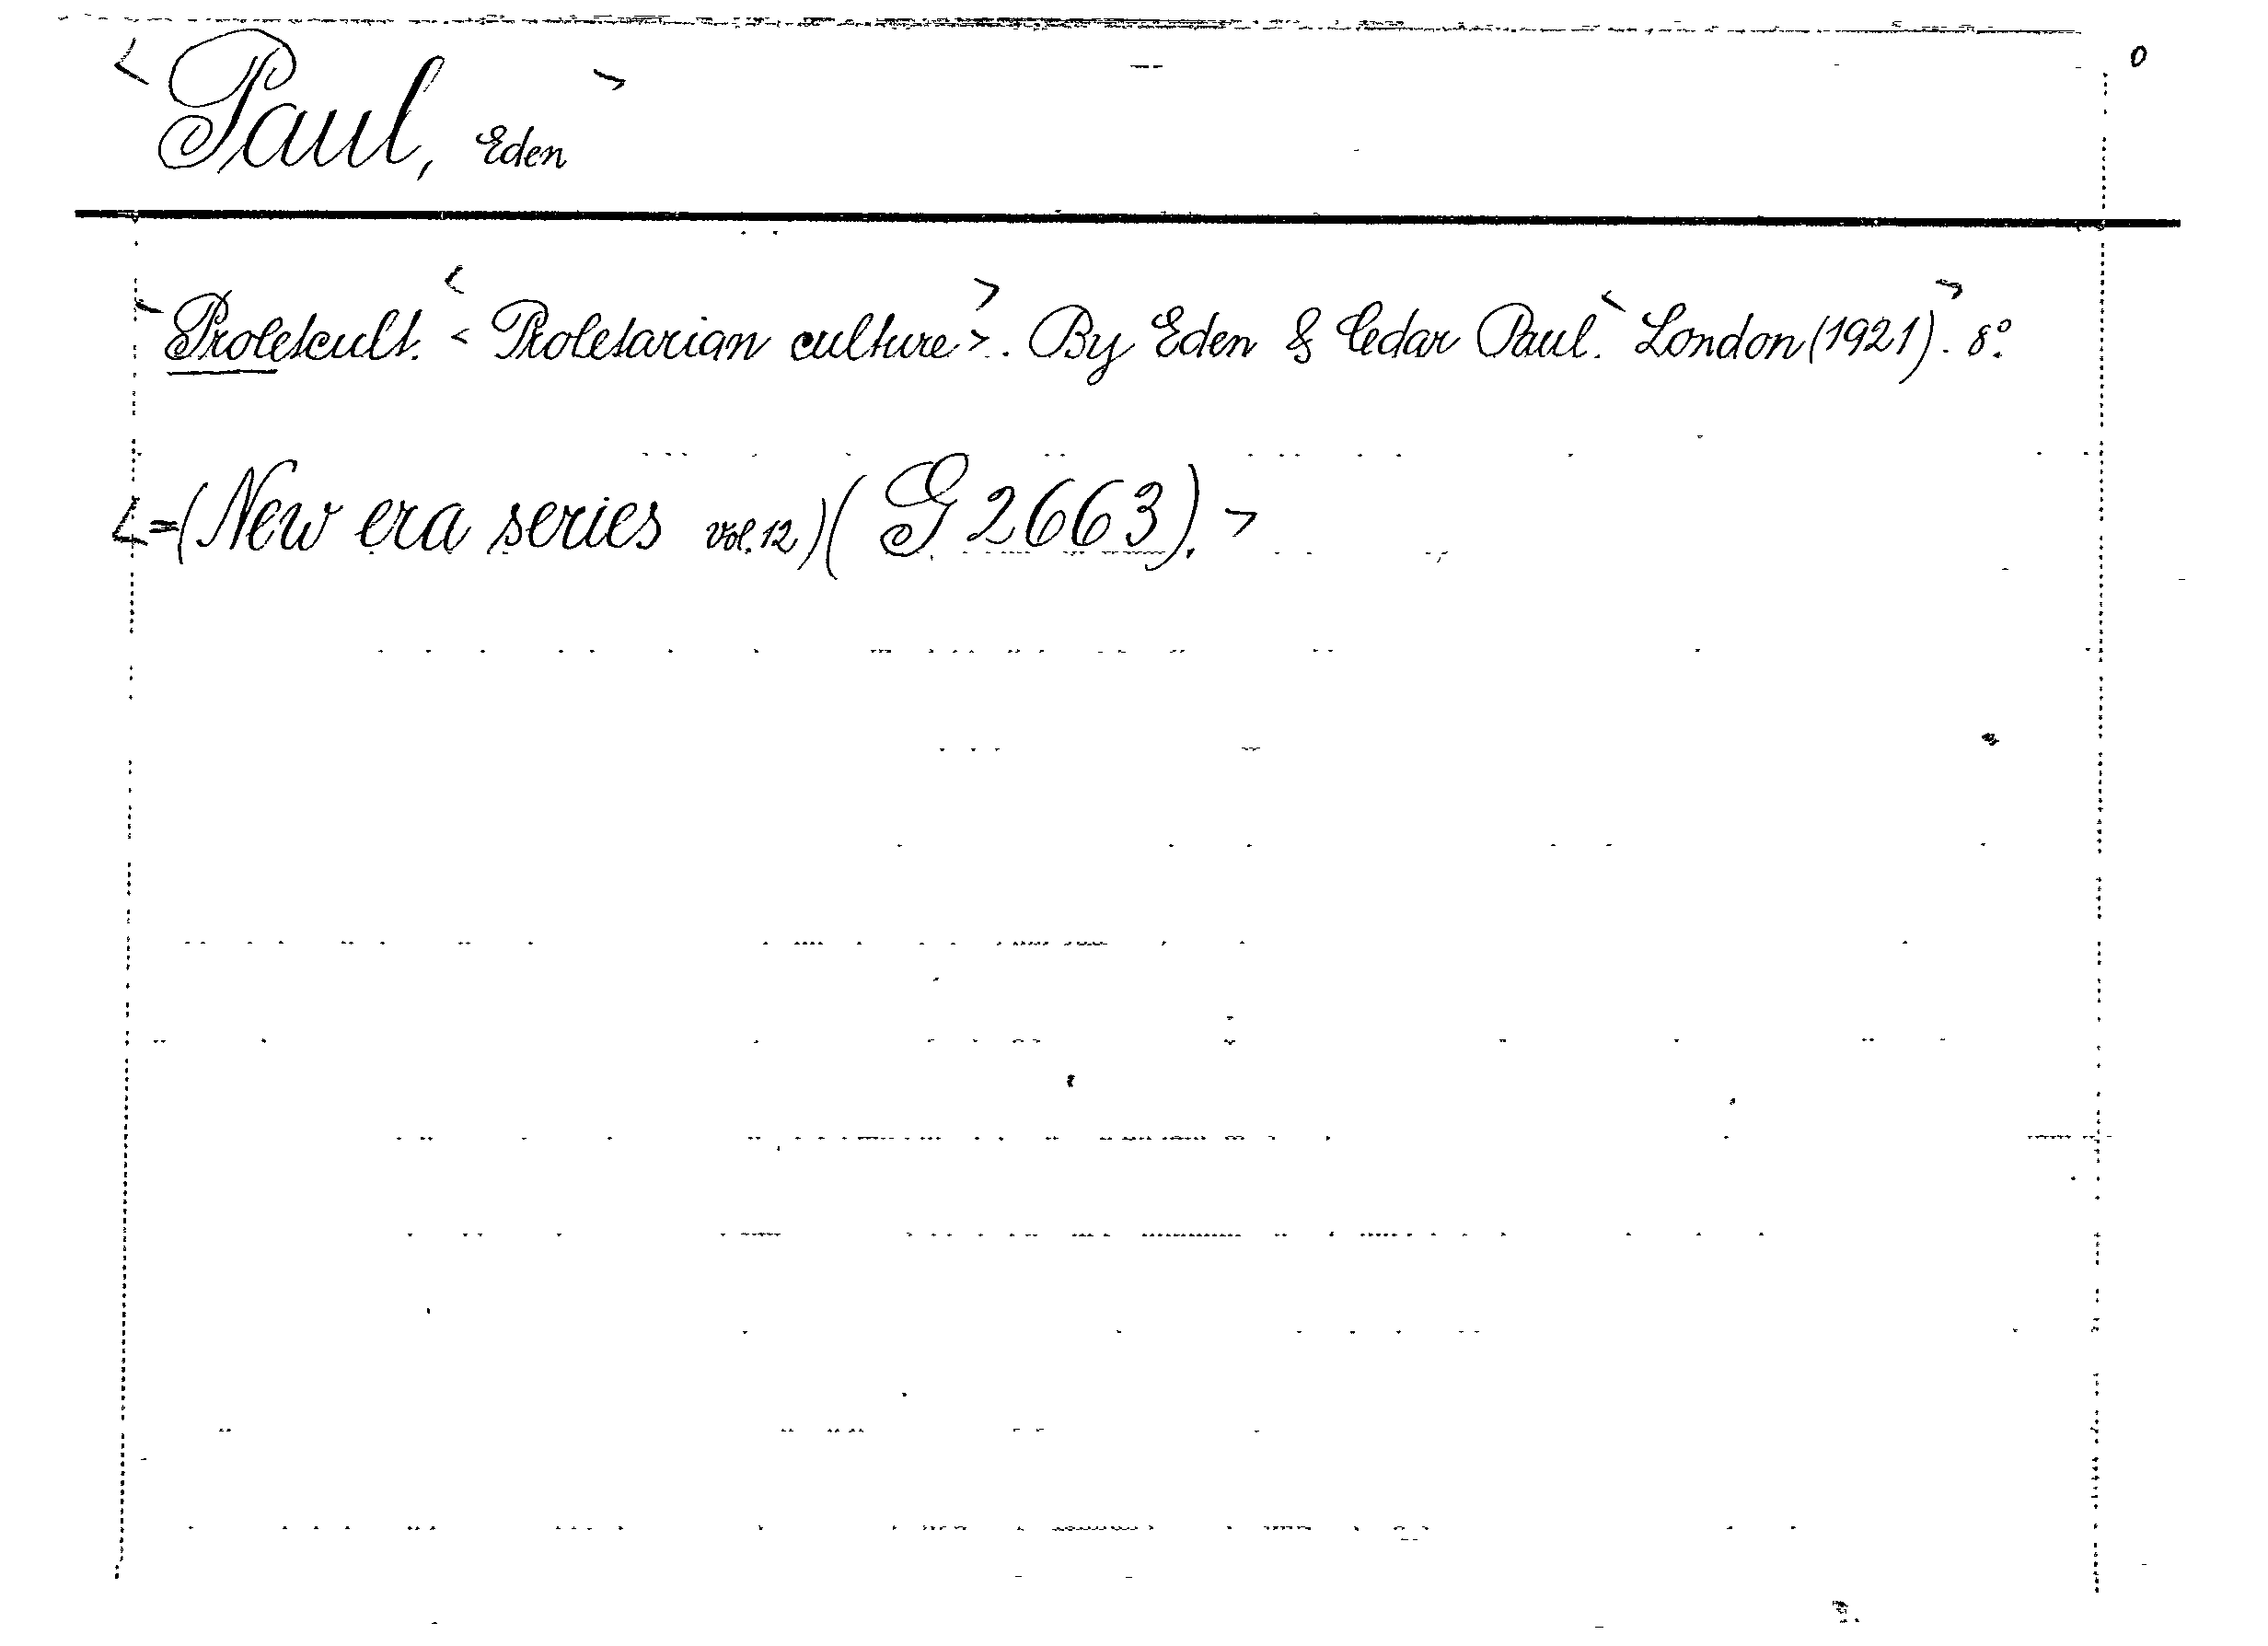 Paul, Eden
Proletcult. < Proletarian culture >. By Eden & Cedar Paul. London (1921). 8°.
= (New era series vol. 12) (G 2663).